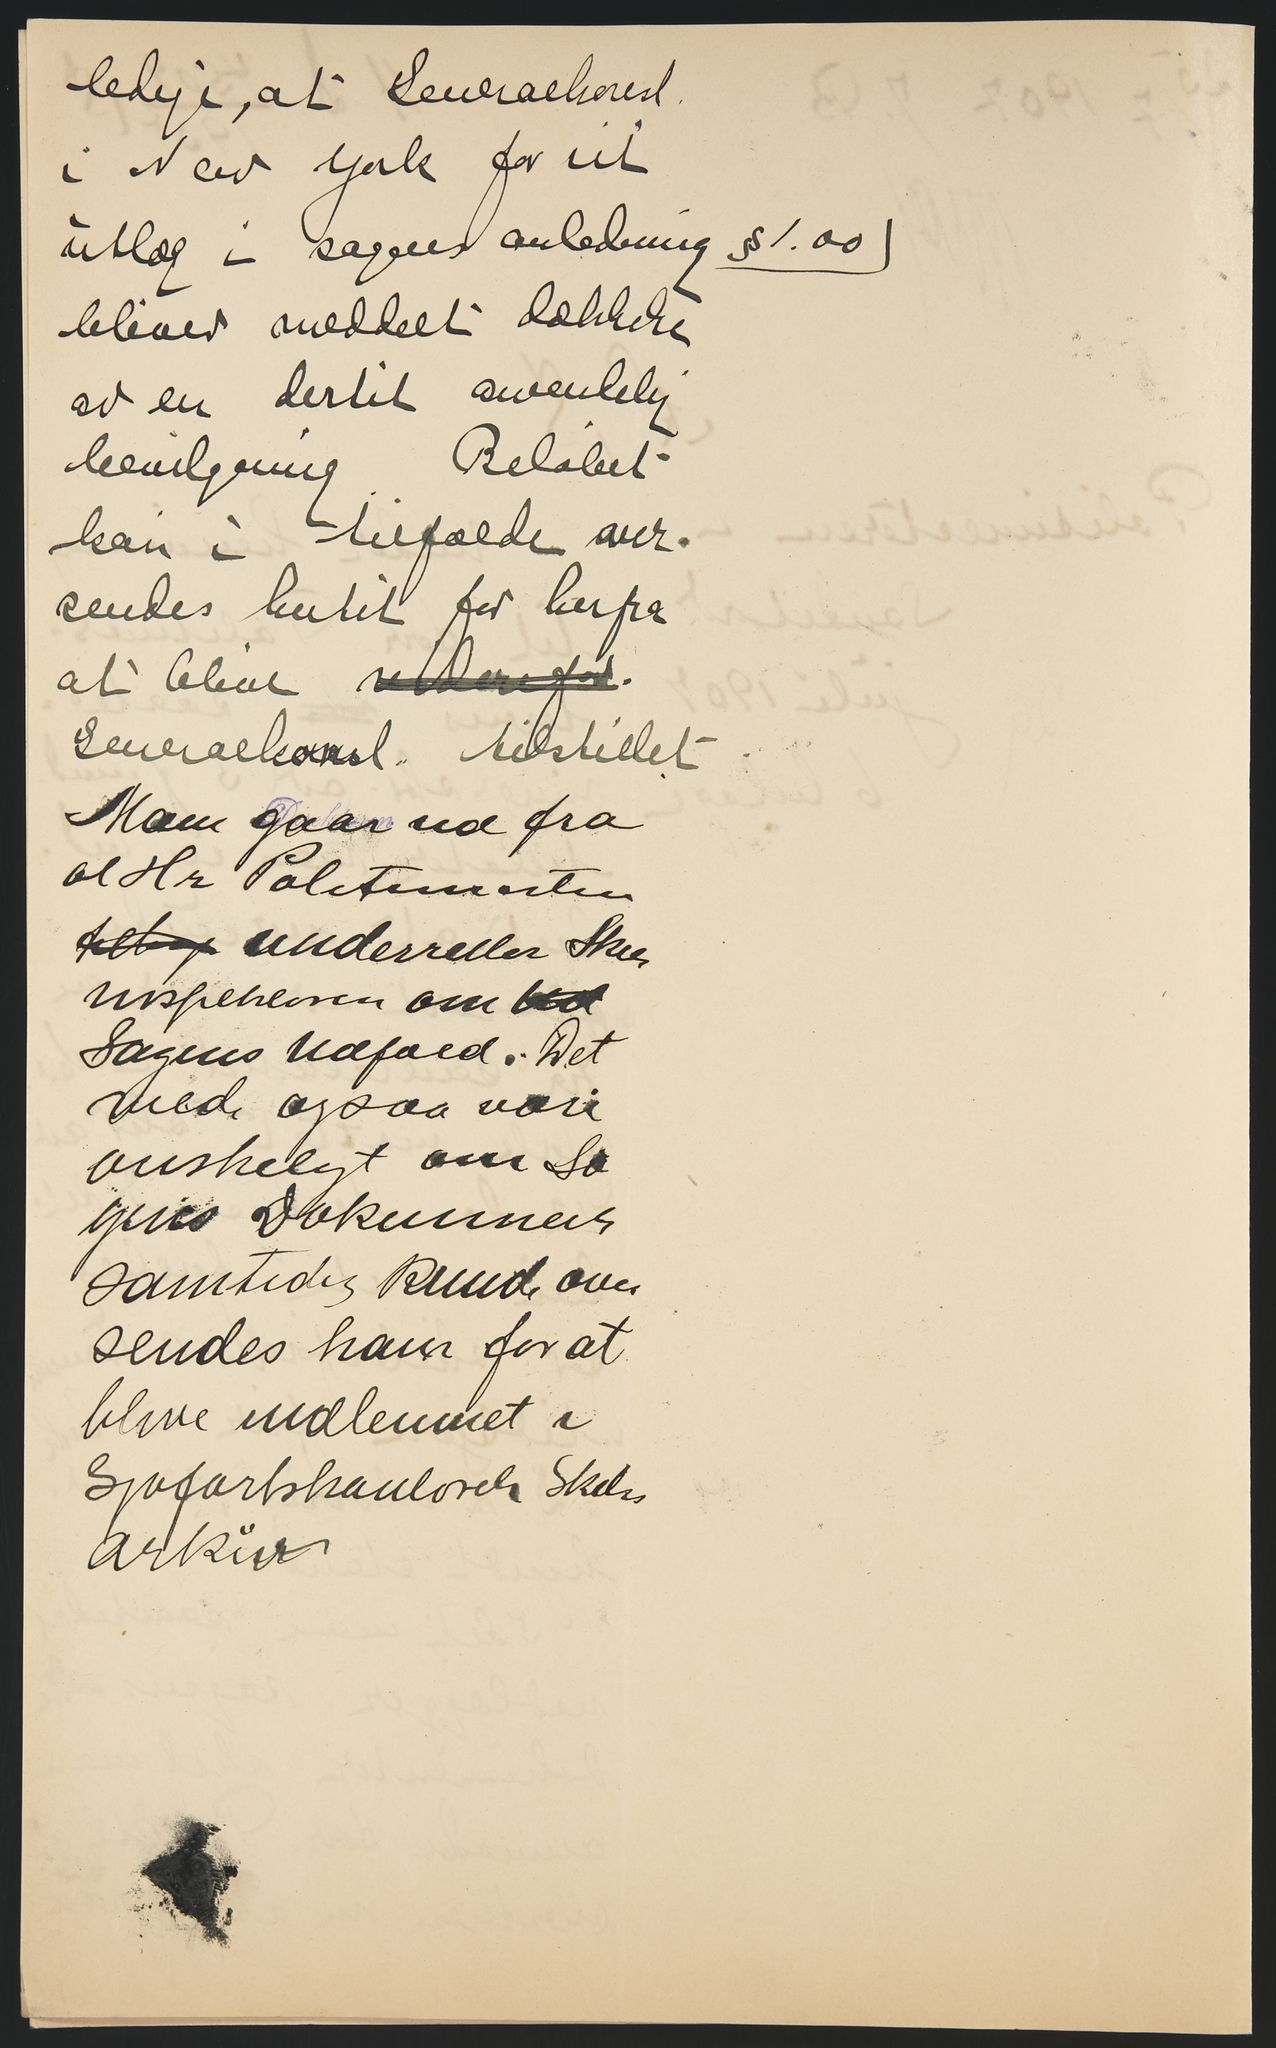 at Generalkonsl.
i New York for sit
utlæg i sagens anledning $1.00
bliver meddelt dækning
av en dertil anvendelig
bevilgning Beløbet
kan i tilfælde over-
sendes hertil for herfra
at blive
Generalkonsl. tilstillet
Man gaar ud fra
at Hr Politimesteren
underretter Skibs
inspektøren om
Sagens Udfald. Det
vilde ogsaa være
ønskeligt om Sa
gens Dokumenter
samtidig kunde over
sendes ham for at
blive indlemmet i
Sjøfartskontorets Skibs
arkiv